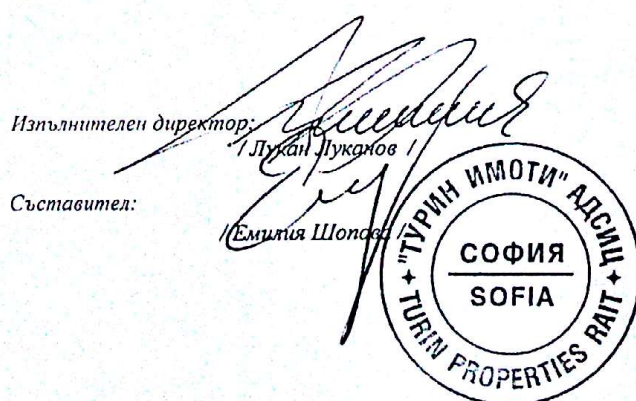 Изпълнителен директор:
/ Лукан Луканов /
Съставител:
/ Емилия Шопова /
"ТУРИН ИМОТИ" АДСИЦ
СОФИЯ
SOFIA
TURIN PROPERTIES RAIT